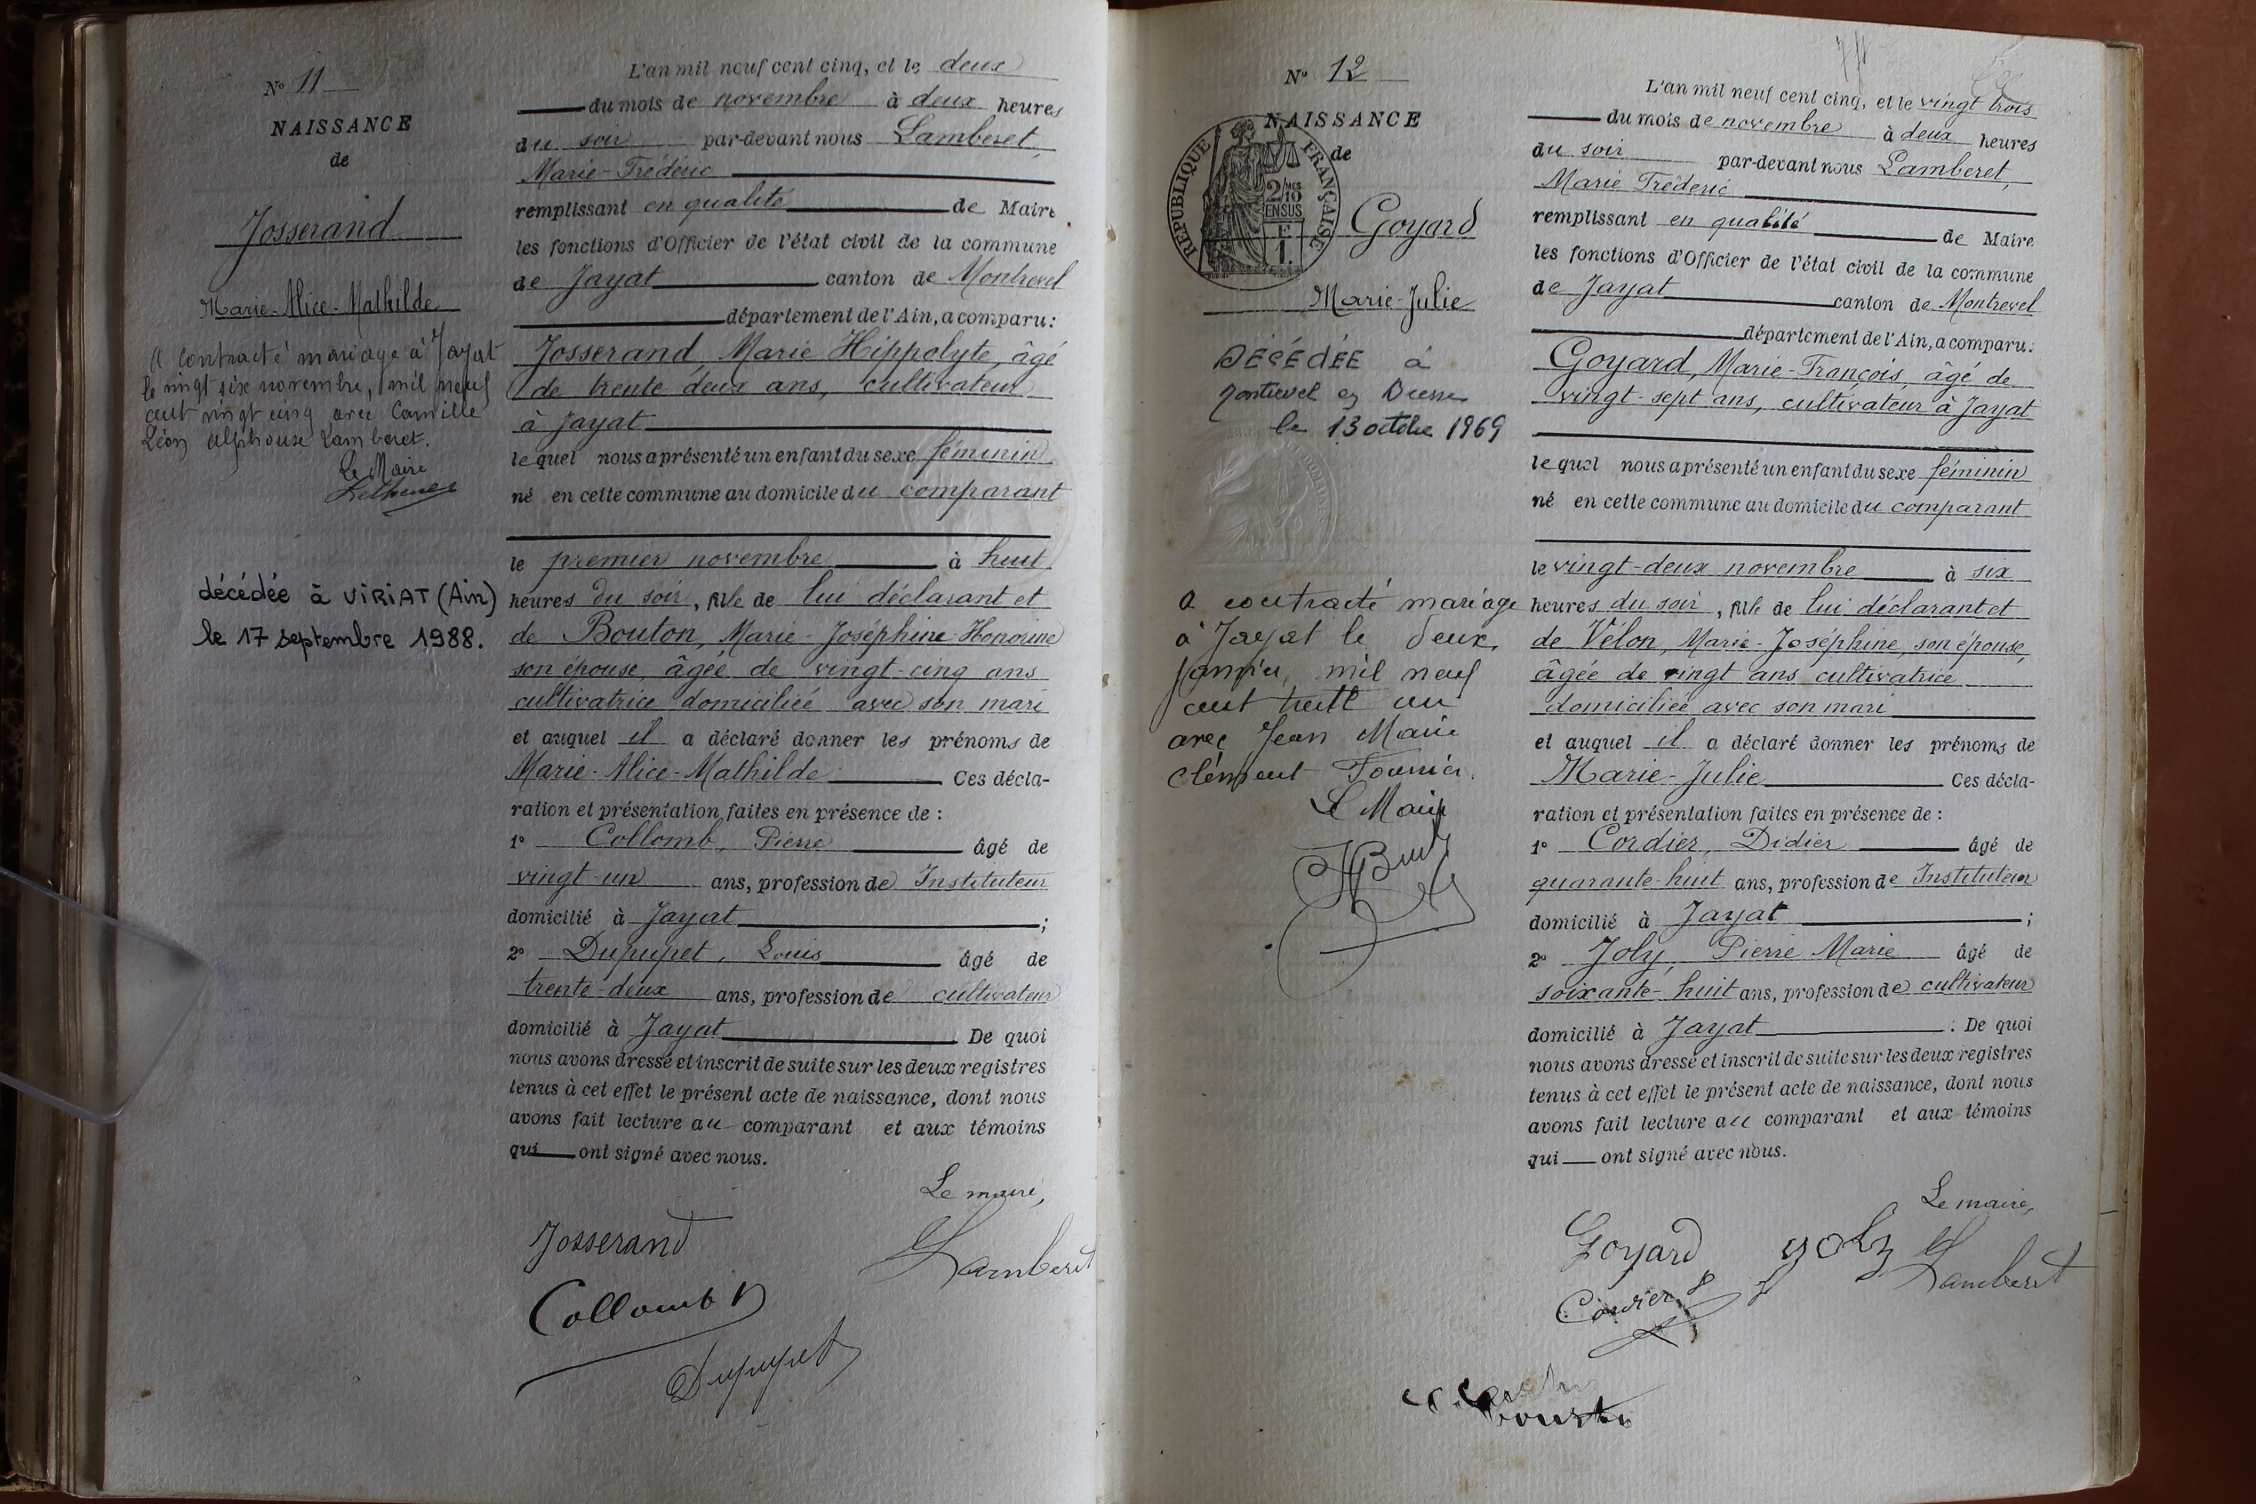 N° 11
NAISSANCE
de
Josserand
Marie-Alice-Mathilde
A contracté mariage à Jayat
le vingt six novembre, mil neuf
cent vingt cinq avec Camille
Léon Alphonse Lamberet.
Le Maire
décédée à VIRIAT (Ain)
le 17 septembre 1988.
L'an mil neuf cent cinq, et le deux
du mois de novembre à deux heures
du soir par-devant nous Lamberet,
Marie-Frédéric
remplissant en qualité de Maire
les fonctions d'Officier de l'état civil de la commune
de Jayat canton de Montrevel
département de l'Ain, a comparu:
Josserand, Marie Hippolyte, âgé
de trente deux ans, cultivateur
à Jayat
lequel nous a présenté un enfant du sexe féminin
né en cette commune au domicile du comparant
le premier novembre à huit
heures du soir, fille de lui déclarant et
de Bouton, Marie-Joséphine-Honorine
son épouse, âgée de vingt-cinq ans
cultivatrice domiciliée avec son mari
et auquel il a déclaré donner les prénoms de
Marie-Alice-Mathilde Ces décla-
ration et présentation faites en présence de :
1° Collomb, Pierre âgé de
vingt-un ans, profession de Instituteur
domicilié à Jayat ;
2° Dupupet, Louis âgé de
trente-deux ans, profession de cultivateur
domicilié à Jayat. De quoi
nous avons dressé et inscrit de suite sur les deux registres
tenus à cet effet le présent acte de naissance, dont nous
avons fait lecture au comparant et aux témoins
qui ont signé avec nous.
Le maire,
Josserand
Lamberet
Collomb
Dupupet
N° 12
NAISSANCE
de
RÉPUBLIQUE FRANÇAISE
2/10
EN SUS
1 F
Goyard
Marie-Julie
DÉCÉDÉE à
Montrevel en Bresse
le 13 octobre 1969
A contracté mariage
à Jayat le deux
janvier, mil neuf
cent trente un
avec Jean Marie
Clément Fournier.
Le Maire
L'an mil neuf cent cinq, et le vingt trois
du mois de novembre à deux heures
du soir par-devant nous Lamberet,
Marie Frédéric
remplissant en qualité de Maire
les fonctions d'Officier de l'état civil de la commune
de Jayat canton de Montrevel
département de l'Ain, a comparu:
Goyard, Marie-François, âgé de
vingt-sept ans, cultivateur à Jayat
lequel nous a présenté un enfant du sexe féminin
né en cette commune au domicile du comparant
le vingt-deux novembre à six
heures du soir, fille de lui déclarant et
de Vélon, Marie-Joséphine, son épouse,
âgée de vingt ans cultivatrice
domiciliée avec son mari
et auquel il a déclaré donner les prénoms de
Marie-Julie Ces décla-
ration et présentation faites en présence de :
1° Cordier, Didier âgé de
quarante-huit ans, profession de Instituteur
domicilié à Jayat ;
2° Joly, Pierre Marie âgé de
soixante-huit ans, profession de cultivateur
domicilié à Jayat. De quoi
nous avons dressé et inscrit de suite sur les deux registres
tenus à cet effet le présent acte de naissance, dont nous
avons fait lecture au comparant et aux témoins
qui ont signé avec nous.
Le maire,
Goyard Joly Lamberet
Cordier